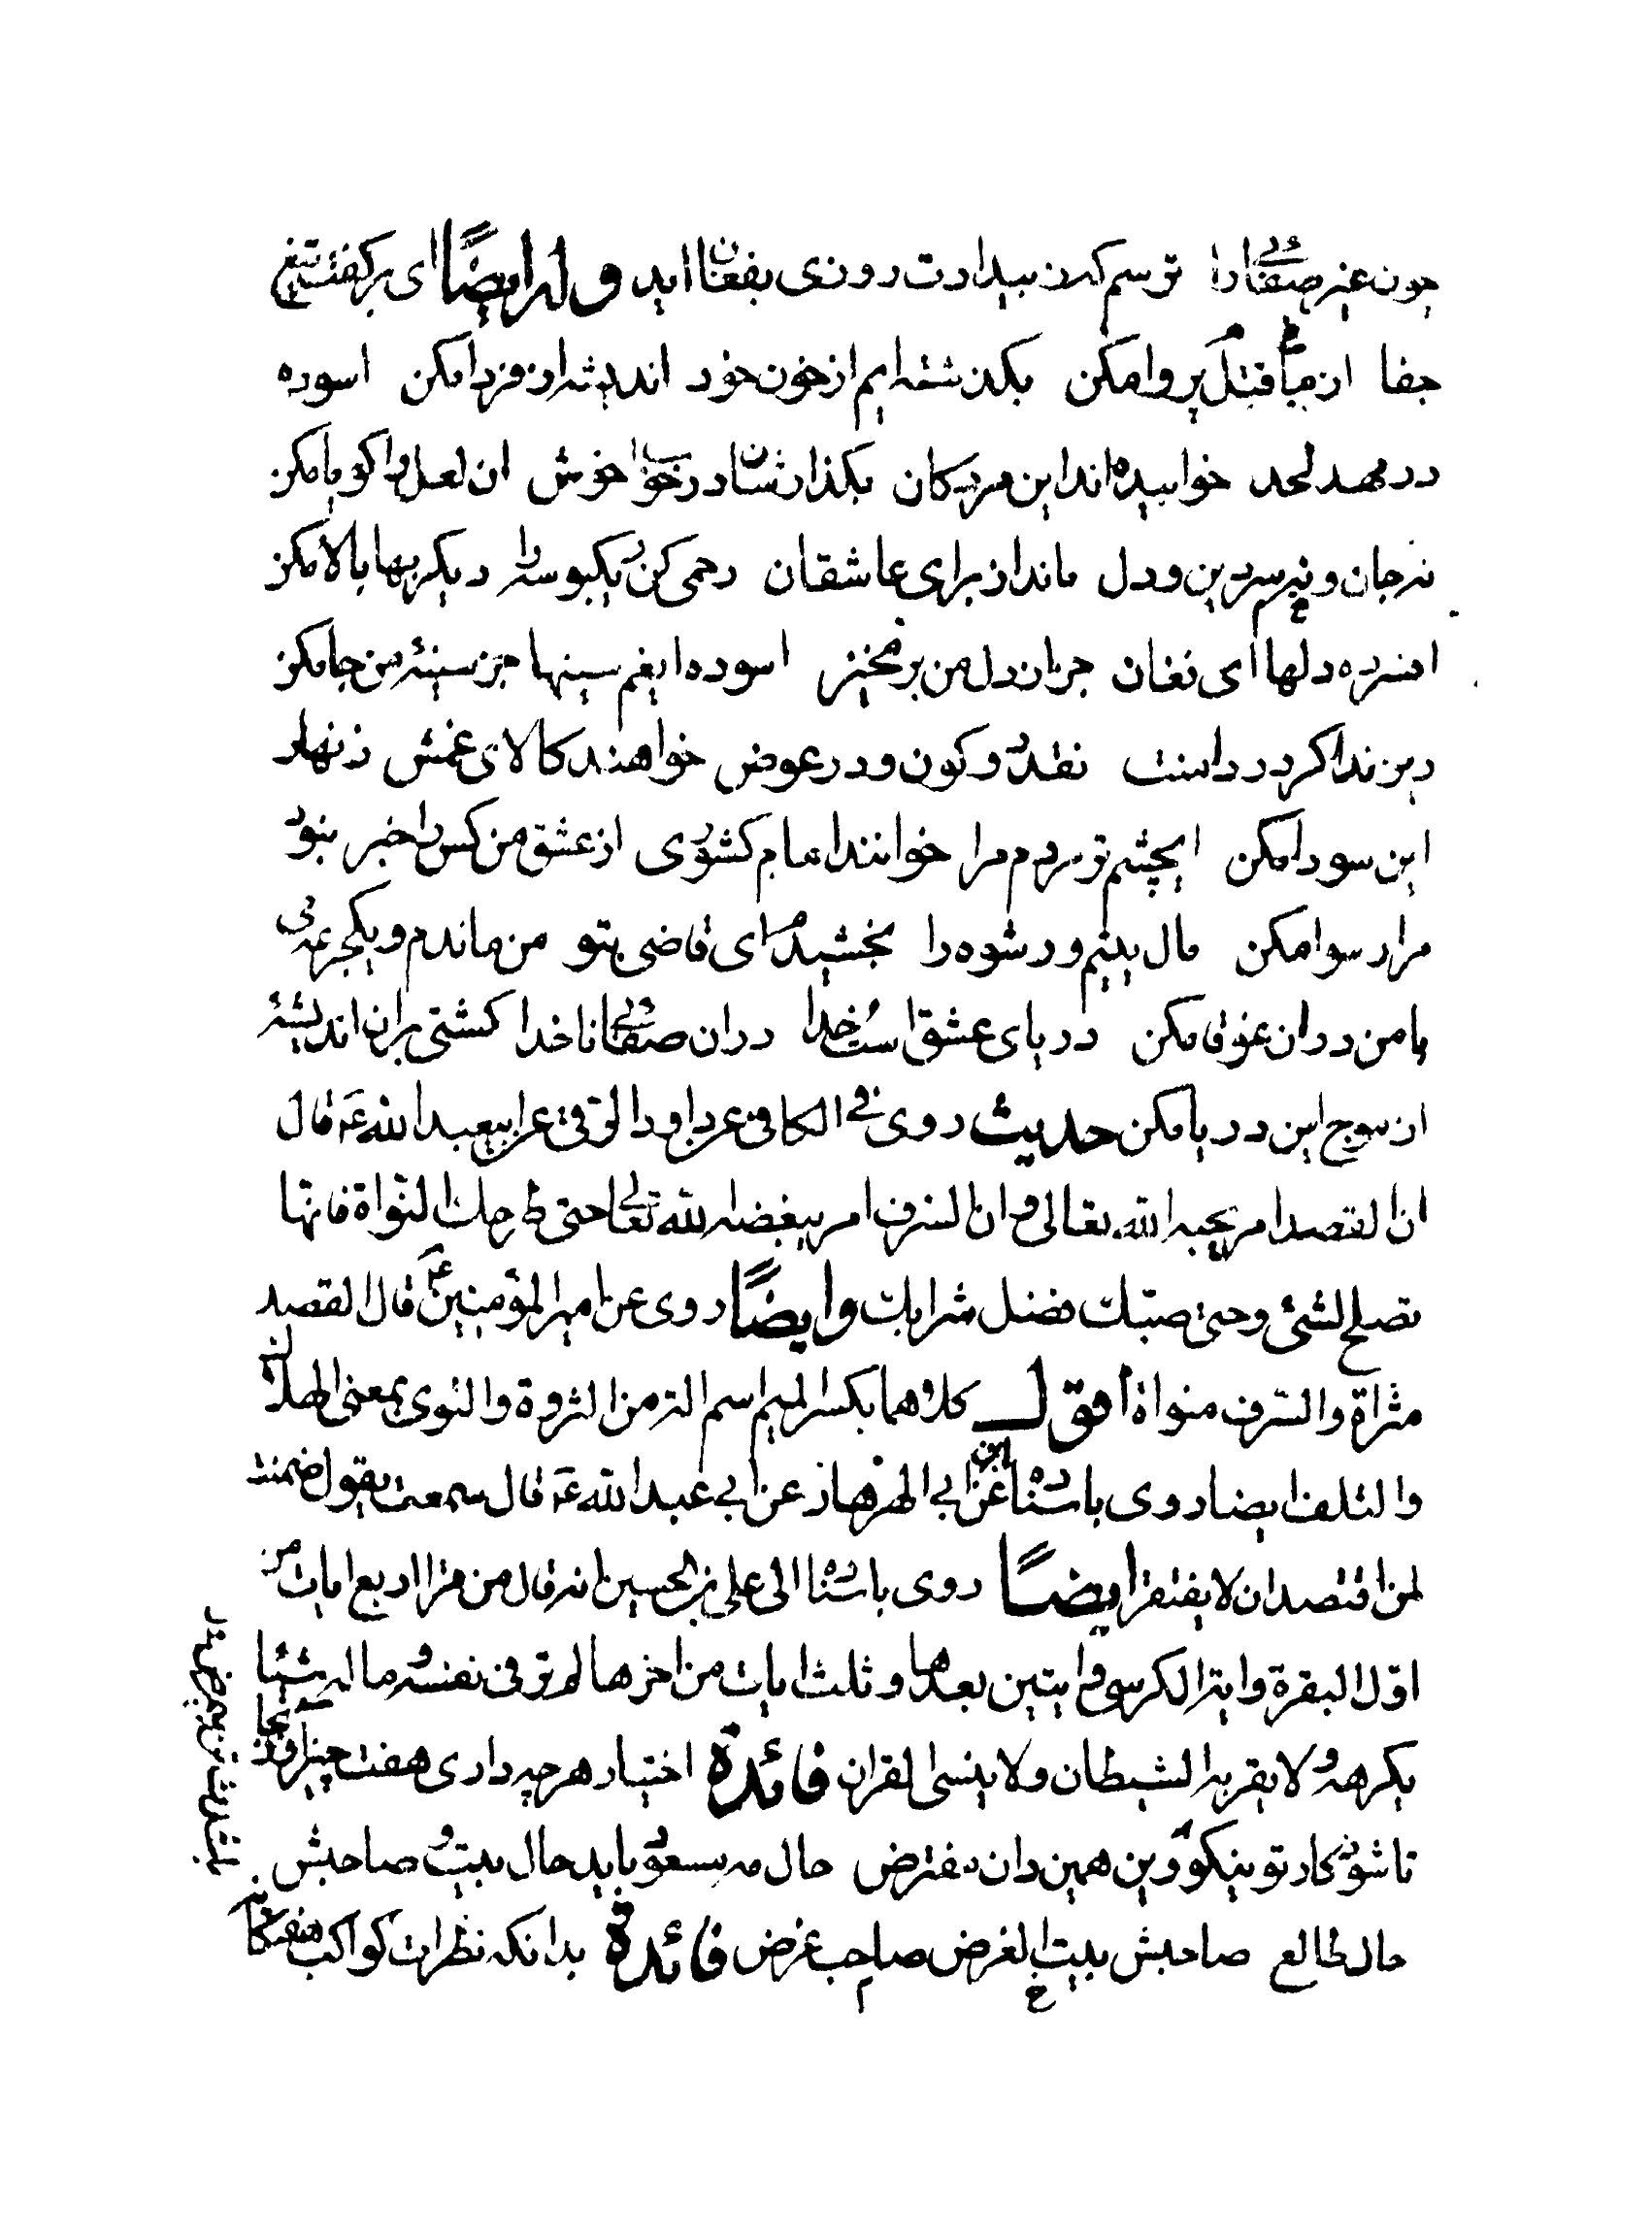 چون غیر صفائی را ترسم که ز بیدادت روزی بفغان اید وله ایضاً ای برکفت تیغ
جفا از ما بقتل پروا مکن بگذشته ایم از خون خود اندیشه از فردا مکن اسوده
در مهد لحد خوابیده اند این مردگان بگذارشان در خواب خوش ان لعل را گویا مکن
نه جان و نه سر دین و دل ماند از برای عاشقان رحمی کن یکبوسه را دیگر بها بالا مکن
افسرده دلها ای فغان جز از دل من بر مخیز اسوده ایغم سینها جز سینهٔ من جا مکن
دین ندا کرد در دلست نقد دو کون و در عوض خواهند کالای غمش زنهار
این سودا مکن ایچشم تر مردم مرا خوانند امام کشوری از عشق من کس را خبر نبود
مرا رسوا مکن مال یتیم و رشوه را بخشیدم ای قاضی بتو من ماندم و یکجرعه می
با من در ان غوغا مکن دریای عشق است خدا در ان صفائی ناخدا کشتی بران اندیشهٔ
از موج این دریا مکن حدیث روی فی الکافی عن داود الرقی عن ابیعبد الله ع قال
ان القصد امر یحبه الله تعالی و ان السرف امر یبغضه الله تعالی حتی طرحک النواة فانها
تصلح لشئ و حتی صبّک فضل شرابک وایضاً روی عن امیر المؤمنین ع قال القصد
مثراة والسّرف منواة اقول کلاهما بکسر المیم اسم الة من الثروة والنوی بمعنی الهلاک
والتلف ایضا روی باسناده عن ابن ابی عن ابی عبد الله ع قال سمعته یقول ضمنت
لمن اقتصد ان لا یفتقر ایضاً روی باسناده الی علی بن الحسین انه قال من قرا اربع ایات من
اوّل البقرة وایة الکرسی و ایتین بعدها و ثلث ایات من اخرها لم یر فی نفسه و ماله شیئا
یکرهه و لا یقربه الشیطان ولا ینسی القران فائدة اختیار هرچه داری هفت چیز اور بجا
تا شود کار تو نیکو وین همین دان مفترض حال مه مسعود باید حال بیت و صاحبش
حال طالع صاحبش بیت الغرض صاحب غرض فائدة بدانکه نظرات کواکب